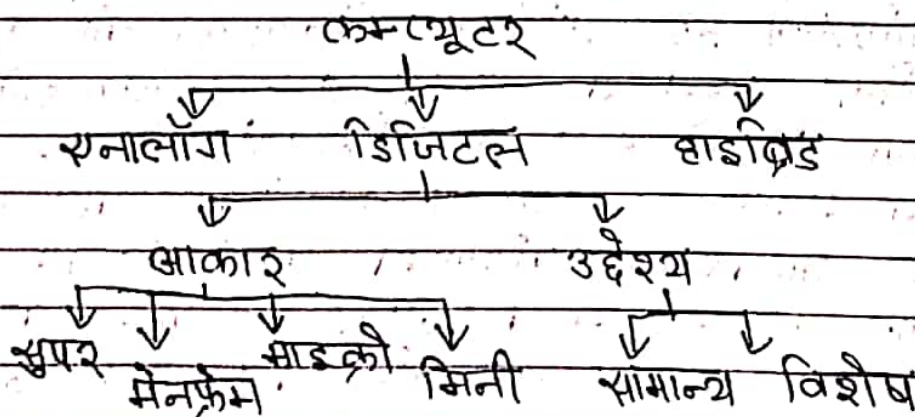 कम्प्यूटर
एनालॉग डिजिटल हाइब्रिड
आकार उद्देश्य
सुपर मेनफ्रेम माइक्रो मिनी सामान्य विशेष